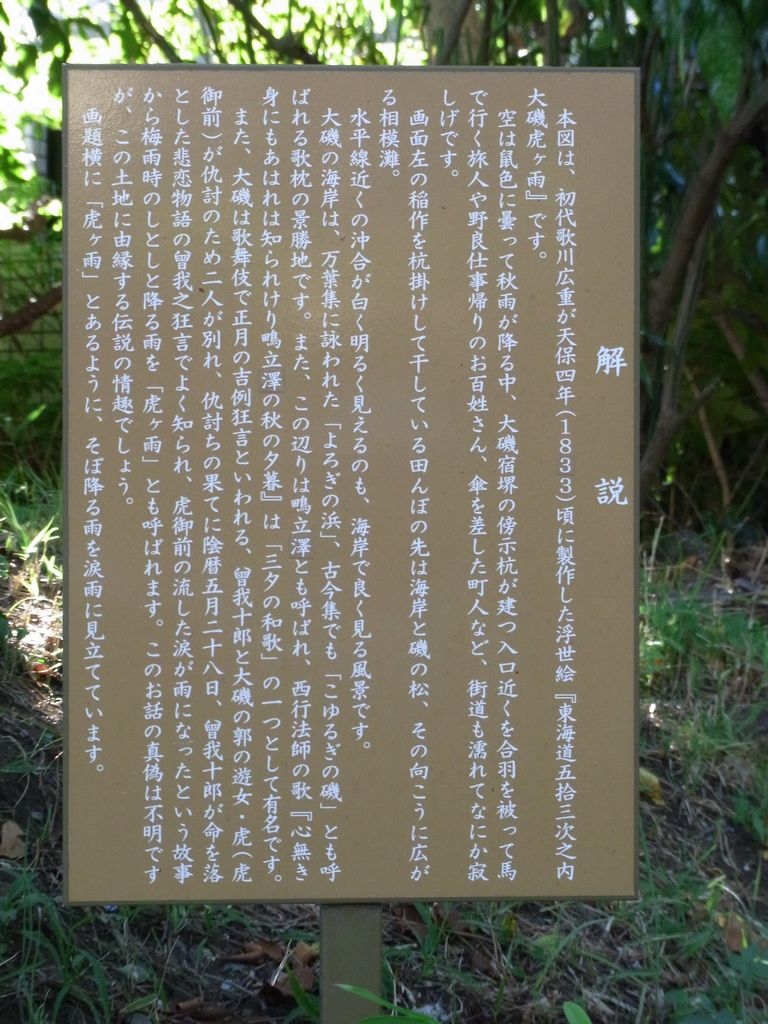 解説
本図は、初代歌川広重が天保四年(1833)頃に製作した浮世絵『東海道五拾三次之内
大磯虎ヶ雨』です。
空は鼠色に曇って秋雨が降る中、大磯宿堺の傍示杭が建つ入口近くを合羽を被って馬
で行く旅人や野良仕事帰りのお百姓さん、傘を差した町人など、街道も濡れてなにか寂
しげです。
画面左の稲作を杭掛けして干している田んぼの先は海岸と磯の松、その向こうに広が
る相模灘。
水平線近くの沖合が白く明るく見えるのも、海岸で良く見る風景です。
大磯の海岸は、万葉集に詠われた「よろぎの浜」、古今集でも「こゆるぎの磯」とも呼
ばれる歌枕の景勝地です。また、この辺りは鴫立澤とも呼ばれ、西行法師の歌『心無き
身にもあはれは知られけり鴫立澤の秋の夕暮』は「三夕の和歌」の一つとして有名です。
また、大磯は歌舞伎で正月の吉例狂言といわれる、曽我十郎と大磯の郭の遊女・虎(虎
御前)が仇討のため二人が別れ、仇討ちの果てに陰暦五月二十八日、曽我十郎が命を落
とした悲恋物語の曽我之狂言でよく知られ、虎御前の流した涙が雨になったという故事
から梅雨時のしとしと降る雨を「虎ヶ雨」とも呼ばれます。このお話の真偽は不明です
が、この土地に由縁する伝説の情趣でしょう。
画題横に「虎ヶ雨」とあるように、そぼ降る雨を涙雨に見立てています。